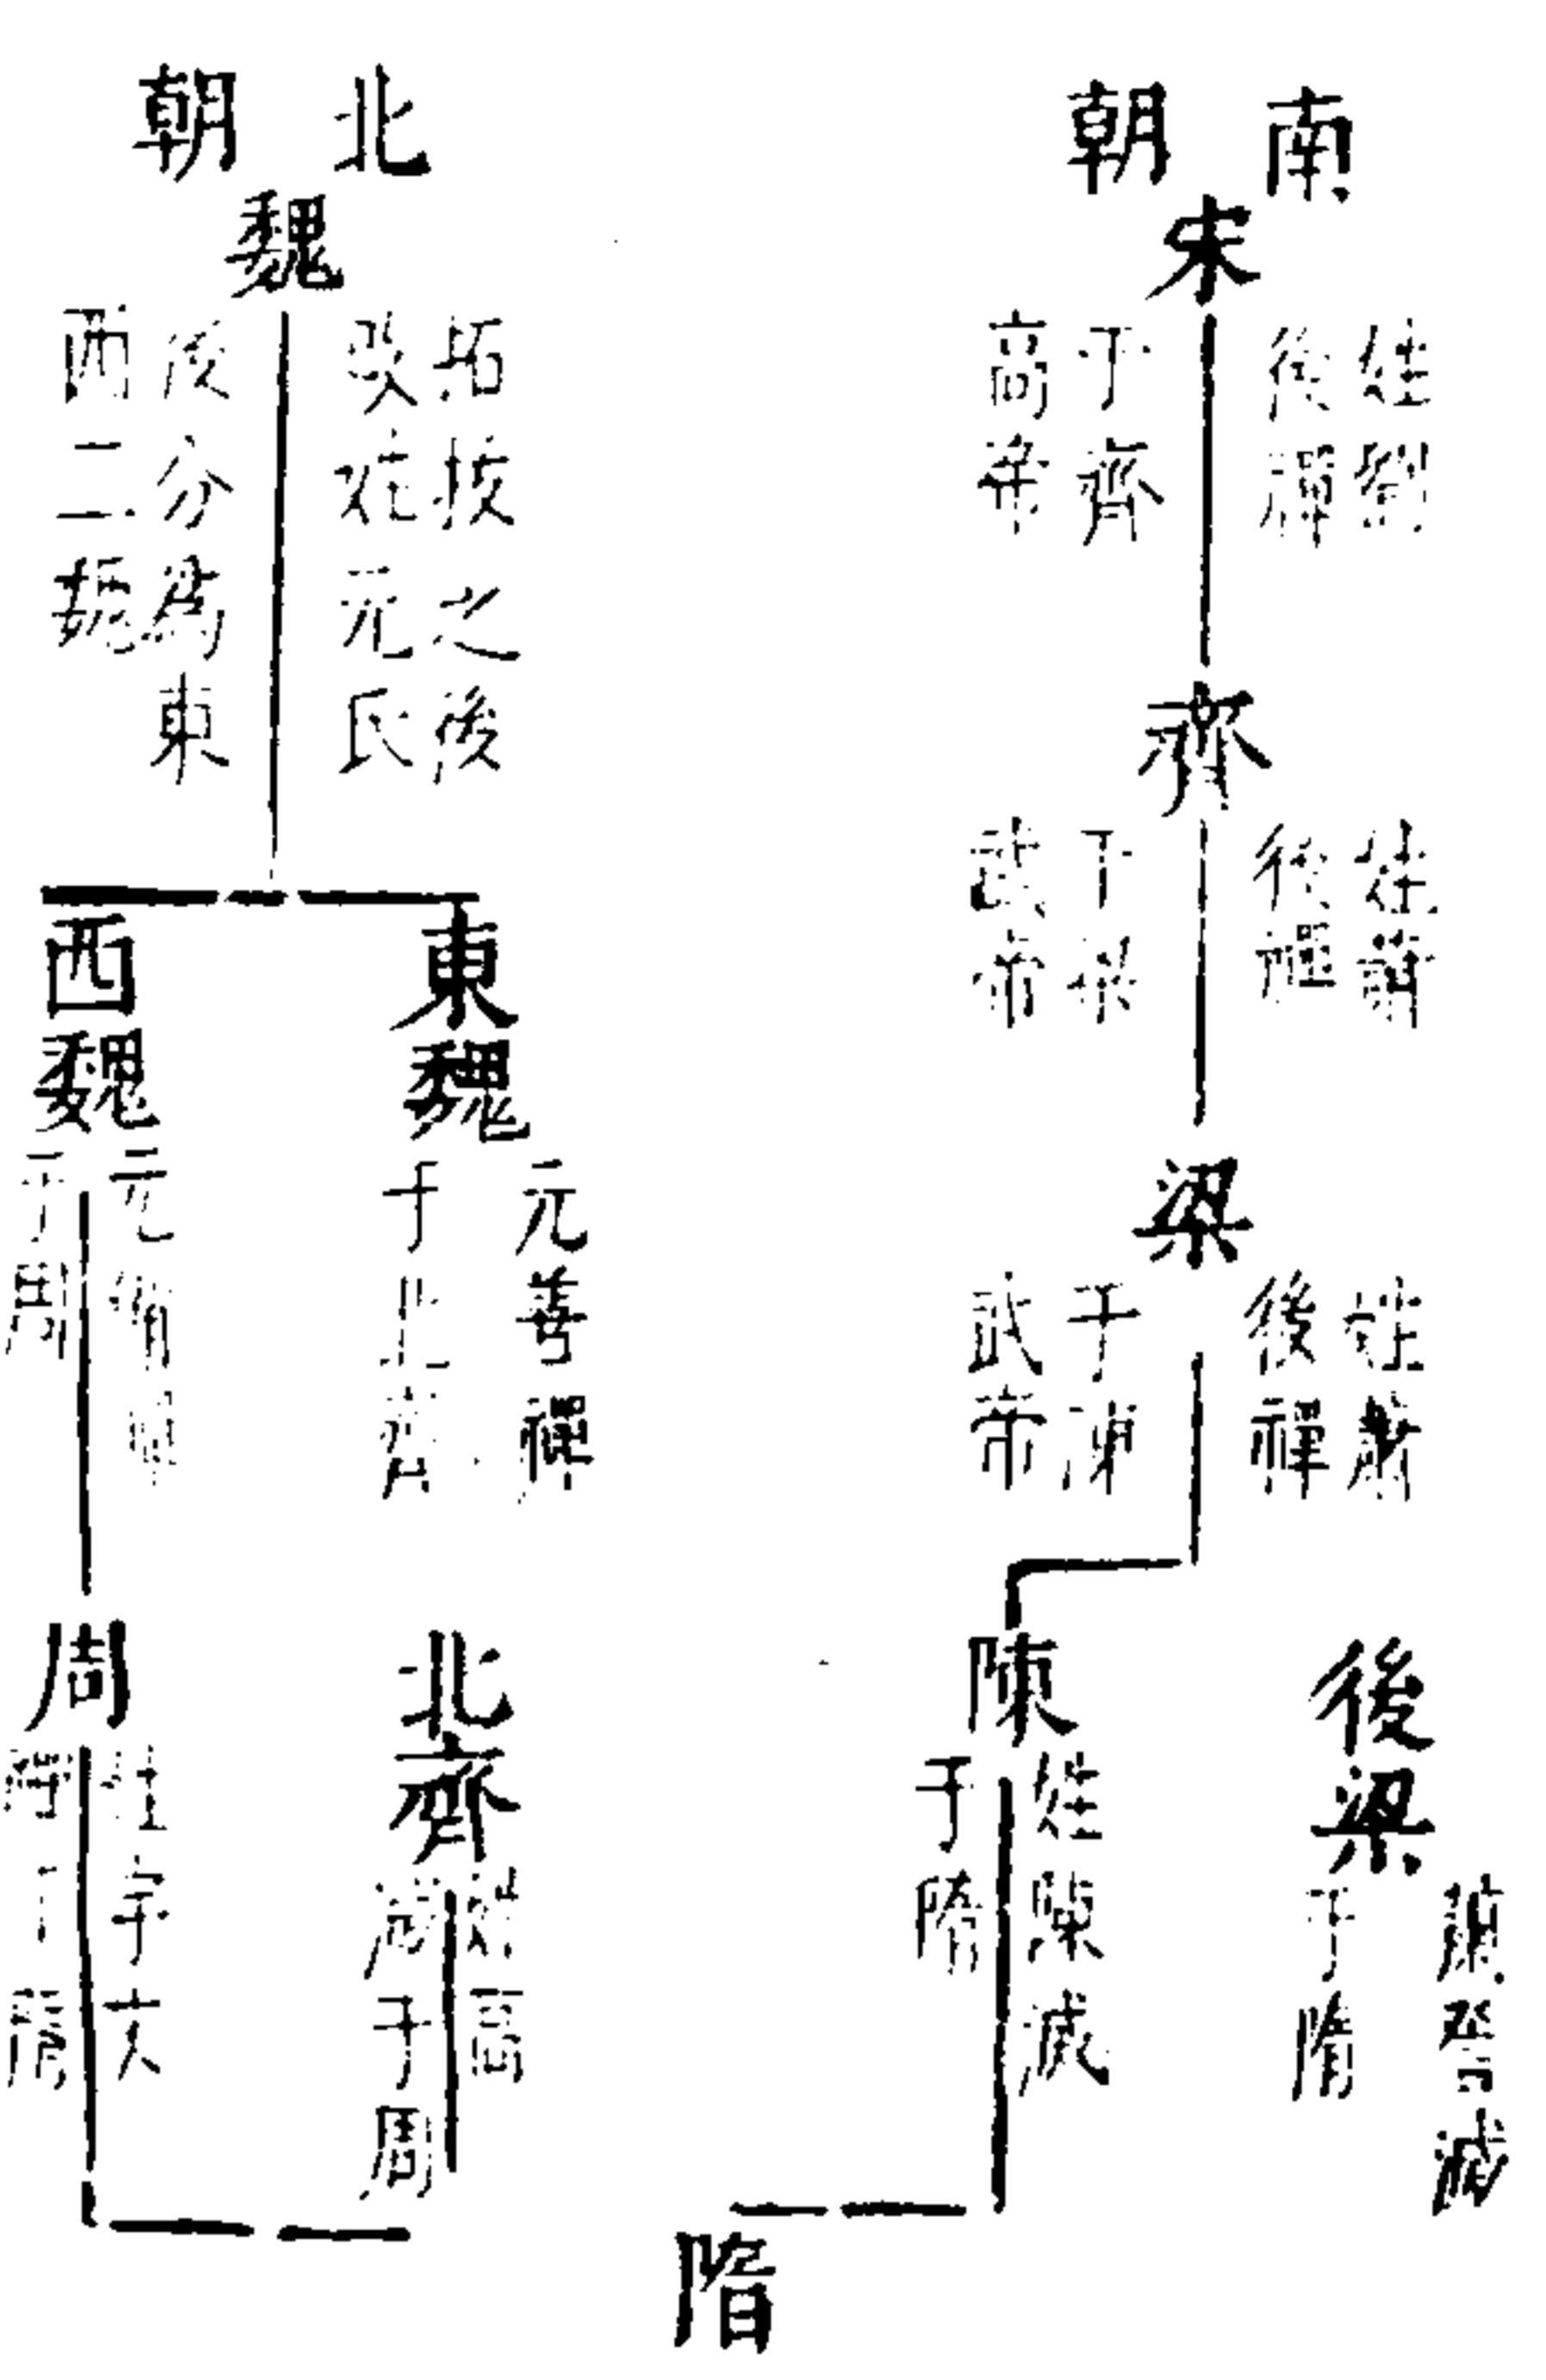 南朝
宋
姓劉
後禪
于齊
高帝
齊
姓蕭
後禪
于梁
武帝
梁
姓蕭
後禪
于陳
武帝
後梁
蕭詧滅
于隋
陳
姓陳滅
于隋
北朝
魏
拓拔之後
改姓元氏
後分爲東
西二魏
東魏
元善禪
于北齊
西魏
元
于周
北齊
于周
周
姓宇文
隋